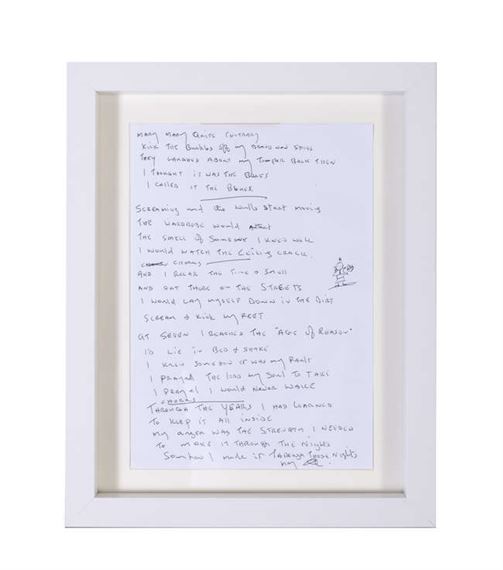 MARY MARY QUITE CONTRARY
KICK THE BUCKLES OFF MY BRAND NEW SHOES
THEY LAUGHED ABOUT MY TEMPER BACK THEN
I THOUGHT IT WAS THE BLUES
I CALLED IT THE
SCREAMING and the walls START MOVING
THE WARDROBE WOULD
THE SMELL of SOMEONE I KNEW WELL
I WOULD WATCH THE CEILING CRACK
CHORUS
AND I RECALL THE TIME & SMELL
AND OUT THERE ON THE STREETS
I WOULD LAY MYSELF DOWN IN THE DIRT
SCREAM & KICK MY FEET
AT SEVEN I REACHED THE "AGE OF REASON"
I'D LIE IN BED & SHAKE
I KNEW SOMEHOW IT WAS MY FAULT
I PRAYED THE LORD MY SOUL TO TAKE
I PRAYED I WOULD NEVER WAKE
CHORUS
THROUGH THE YEARS I HAD LEARNED
TO KEEP IT ALL INSIDE
MY ANGER WAS THE STRENGTH I NEEDED
TO MAKE IT THROUGH THE NIGHTS
SOMEHOW I MADE IT THROUGH THOSE NIGHTS